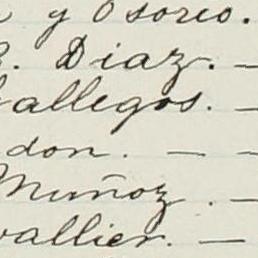 y Osoreo.
B. Diaz. —
Gallegos. —
don. — —
Muñoz. —
vallier. —